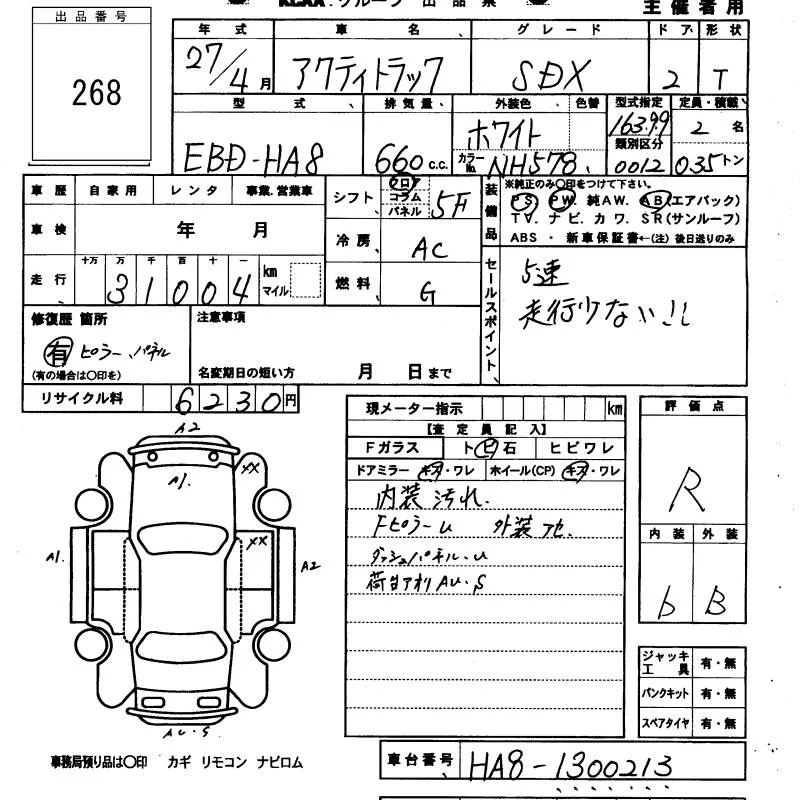 KCAA.グループ 出品票
主催者用
出品番号
268
年式 車名 グレード ドア 形状
27/4月 アクティトラック SDX 2 T
型式 排気量 外装色 色替 型式指定 定員・積載
EBD-HA8 660c.c. ホワイト 16399 2名
カラーNo. NH578 類別区分 0012 035トン
車歴 自家用 レンタ 事業.営業車
車検 年 月
走行 十万 万 千 百 十 一 km マイル
31004
シフト フロ コラム パネル 5F
冷房 AC
燃料 G
装備品
※純正のみ〇印をつけて下さい。
PS. PW. 純AW. AB(エアバック)
TV. ナビ. カワ. SR(サンルーフ)
ABS ・ 新車保証書←(注) 後日送りのみ
セールスポイント
5速
走行少ない!!
修復歴 箇所
有 ピラー、パネル
(有の場合は〇印を)
注意事項
名変期日の短い方 月 日まで
リサイクル料 6230円
現メーター指示 km
【査定員記入】
Fガラス トビ石 ヒビワレ
ドアミラー キズ・ワレ ホイール(CP) キズ・ワレ
内装 汚れ.
FピラーU 外装アセ.
ダッシュパネル.U
荷台アオリ AU.S
評価点
R
内装 外装
b B
A2
A1.
XX
XX
A1.
A2
AU.S
ジャッキ工具 有・無
パンクキット 有・無
スペアタイヤ 有・無
事務局預り品は〇印 カギ リモコン ナビロム
車台番号 HA8-1300213